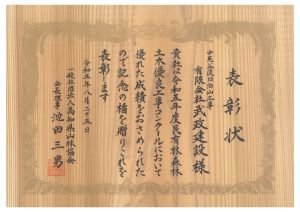 表彰状
有限会社武政建設様
貴社は令和五年度民有林森林
土木優良工事コンクールにおいて
優れた成績をおさめられた
ので記念の楯を贈りこれを
表彰します
令和五年八月二十五日
一般社団法人高知県山林協会
会長理事 池田三男